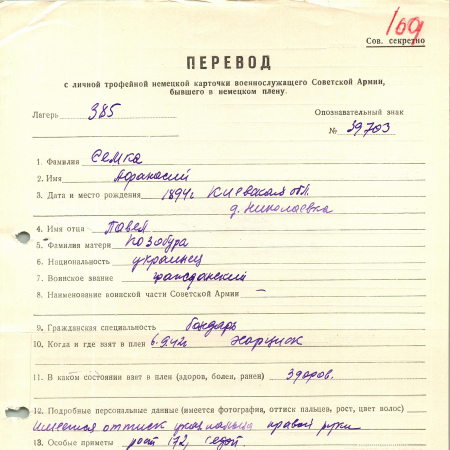 109
Сов. секретно
ПЕРЕВОД
с личной трофейной немецкой карточки военнослужащего Советской Армии,
бывшего в немецком плену.
Лагерь 385 Опознавательный знак
№ 39703
1. Фамилия Семка
2. Имя Афанасий
3. Дата и место рождения 1894г Киевская обл.
д. Николаевка
4. Имя отца Павел
5. Фамилия матери Козобура
6. Национальность украинец
7. Воинское звание гражданский
8. Наименование воинской части Советской Армии —
9. Гражданская специальность бондарь
10. Когда и где взят в плен 6.9.42г Харцизк
11. В каком состоянии взят в плен (здоров, болен, ранен) здоров.
12. Подробные персональные данные (имеется фотография, оттиск пальцев, рост, цвет волос)
Имеется оттиск указ.пальца правой руки
13. Особые приметы рост 172, седой.